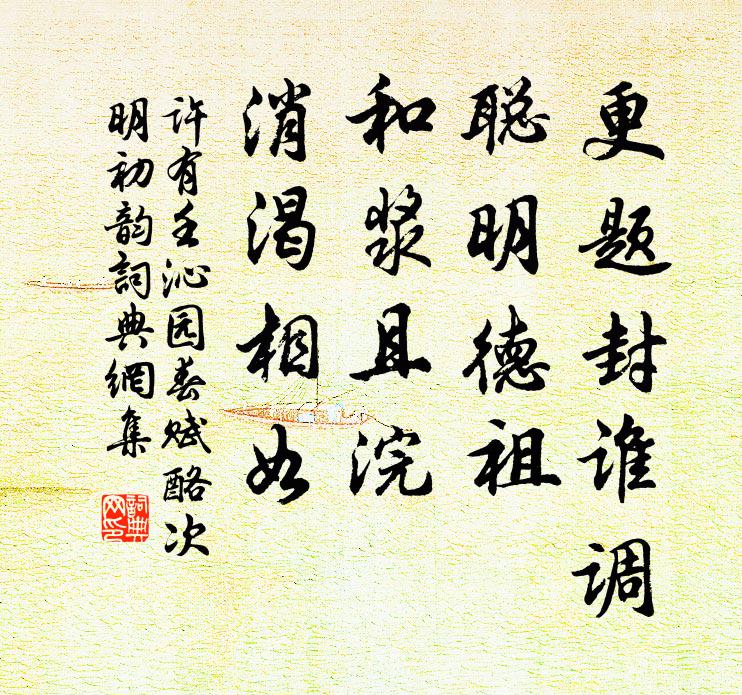 更题封谁调
聪明德祖
和浆且浣
消渴相如
许有壬沁园春赋酪次
明初韵詞典網集
詞典網印